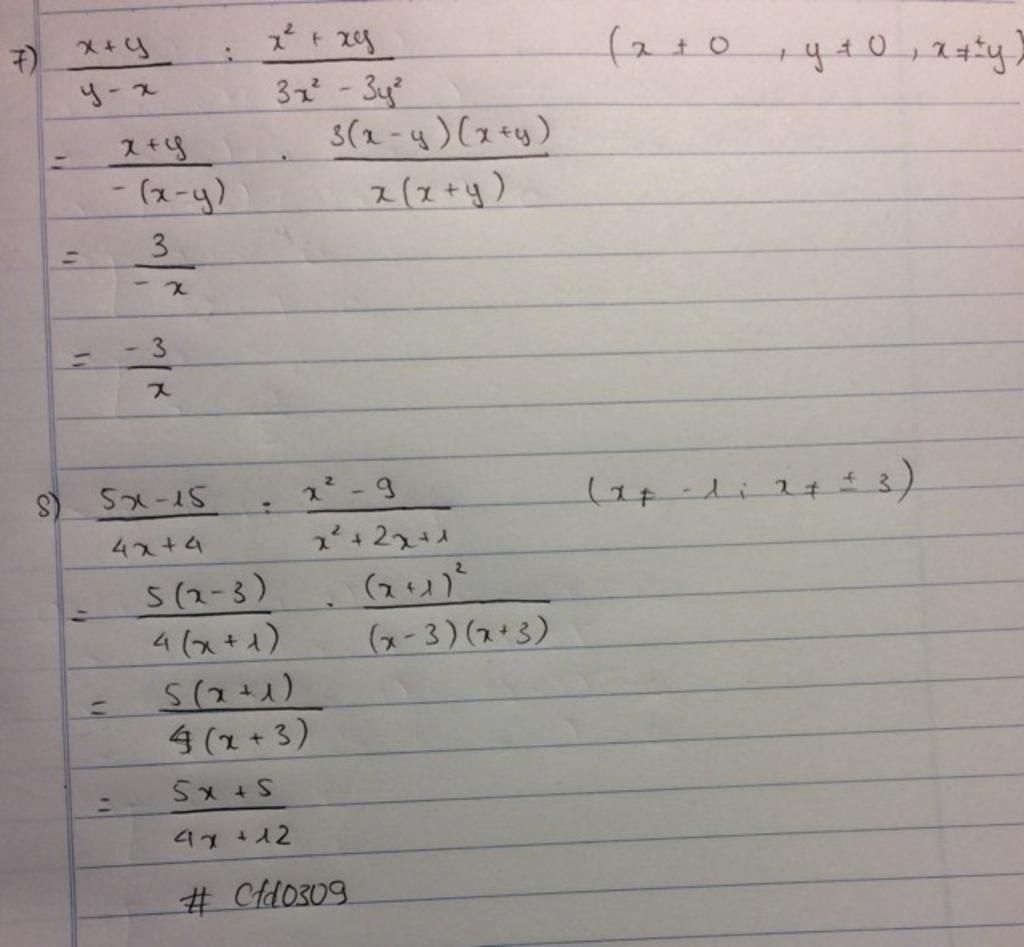 7) (x+y)/(y-x) : (x² + xy)/(3x² - 3y²) (x ≠ 0 , y ≠ 0 , x ≠ ±y)
= (x+y)/(-(x-y)) . (3(x-y)(x+y))/(x(x+y))
= 3/(-x)
= (-3)/x
8) (5x-15)/(4x+4) : (x² - 9)/(x² + 2x+1) (x ≠ -1 ; x ≠ ± 3)
= (5(x-3))/(4(x+1)) . ((x+1)²)/((x-3)(x+3))
= (5(x+1))/(4(x+3))
= (5x+5)/(4x+12)
# Cfd0309